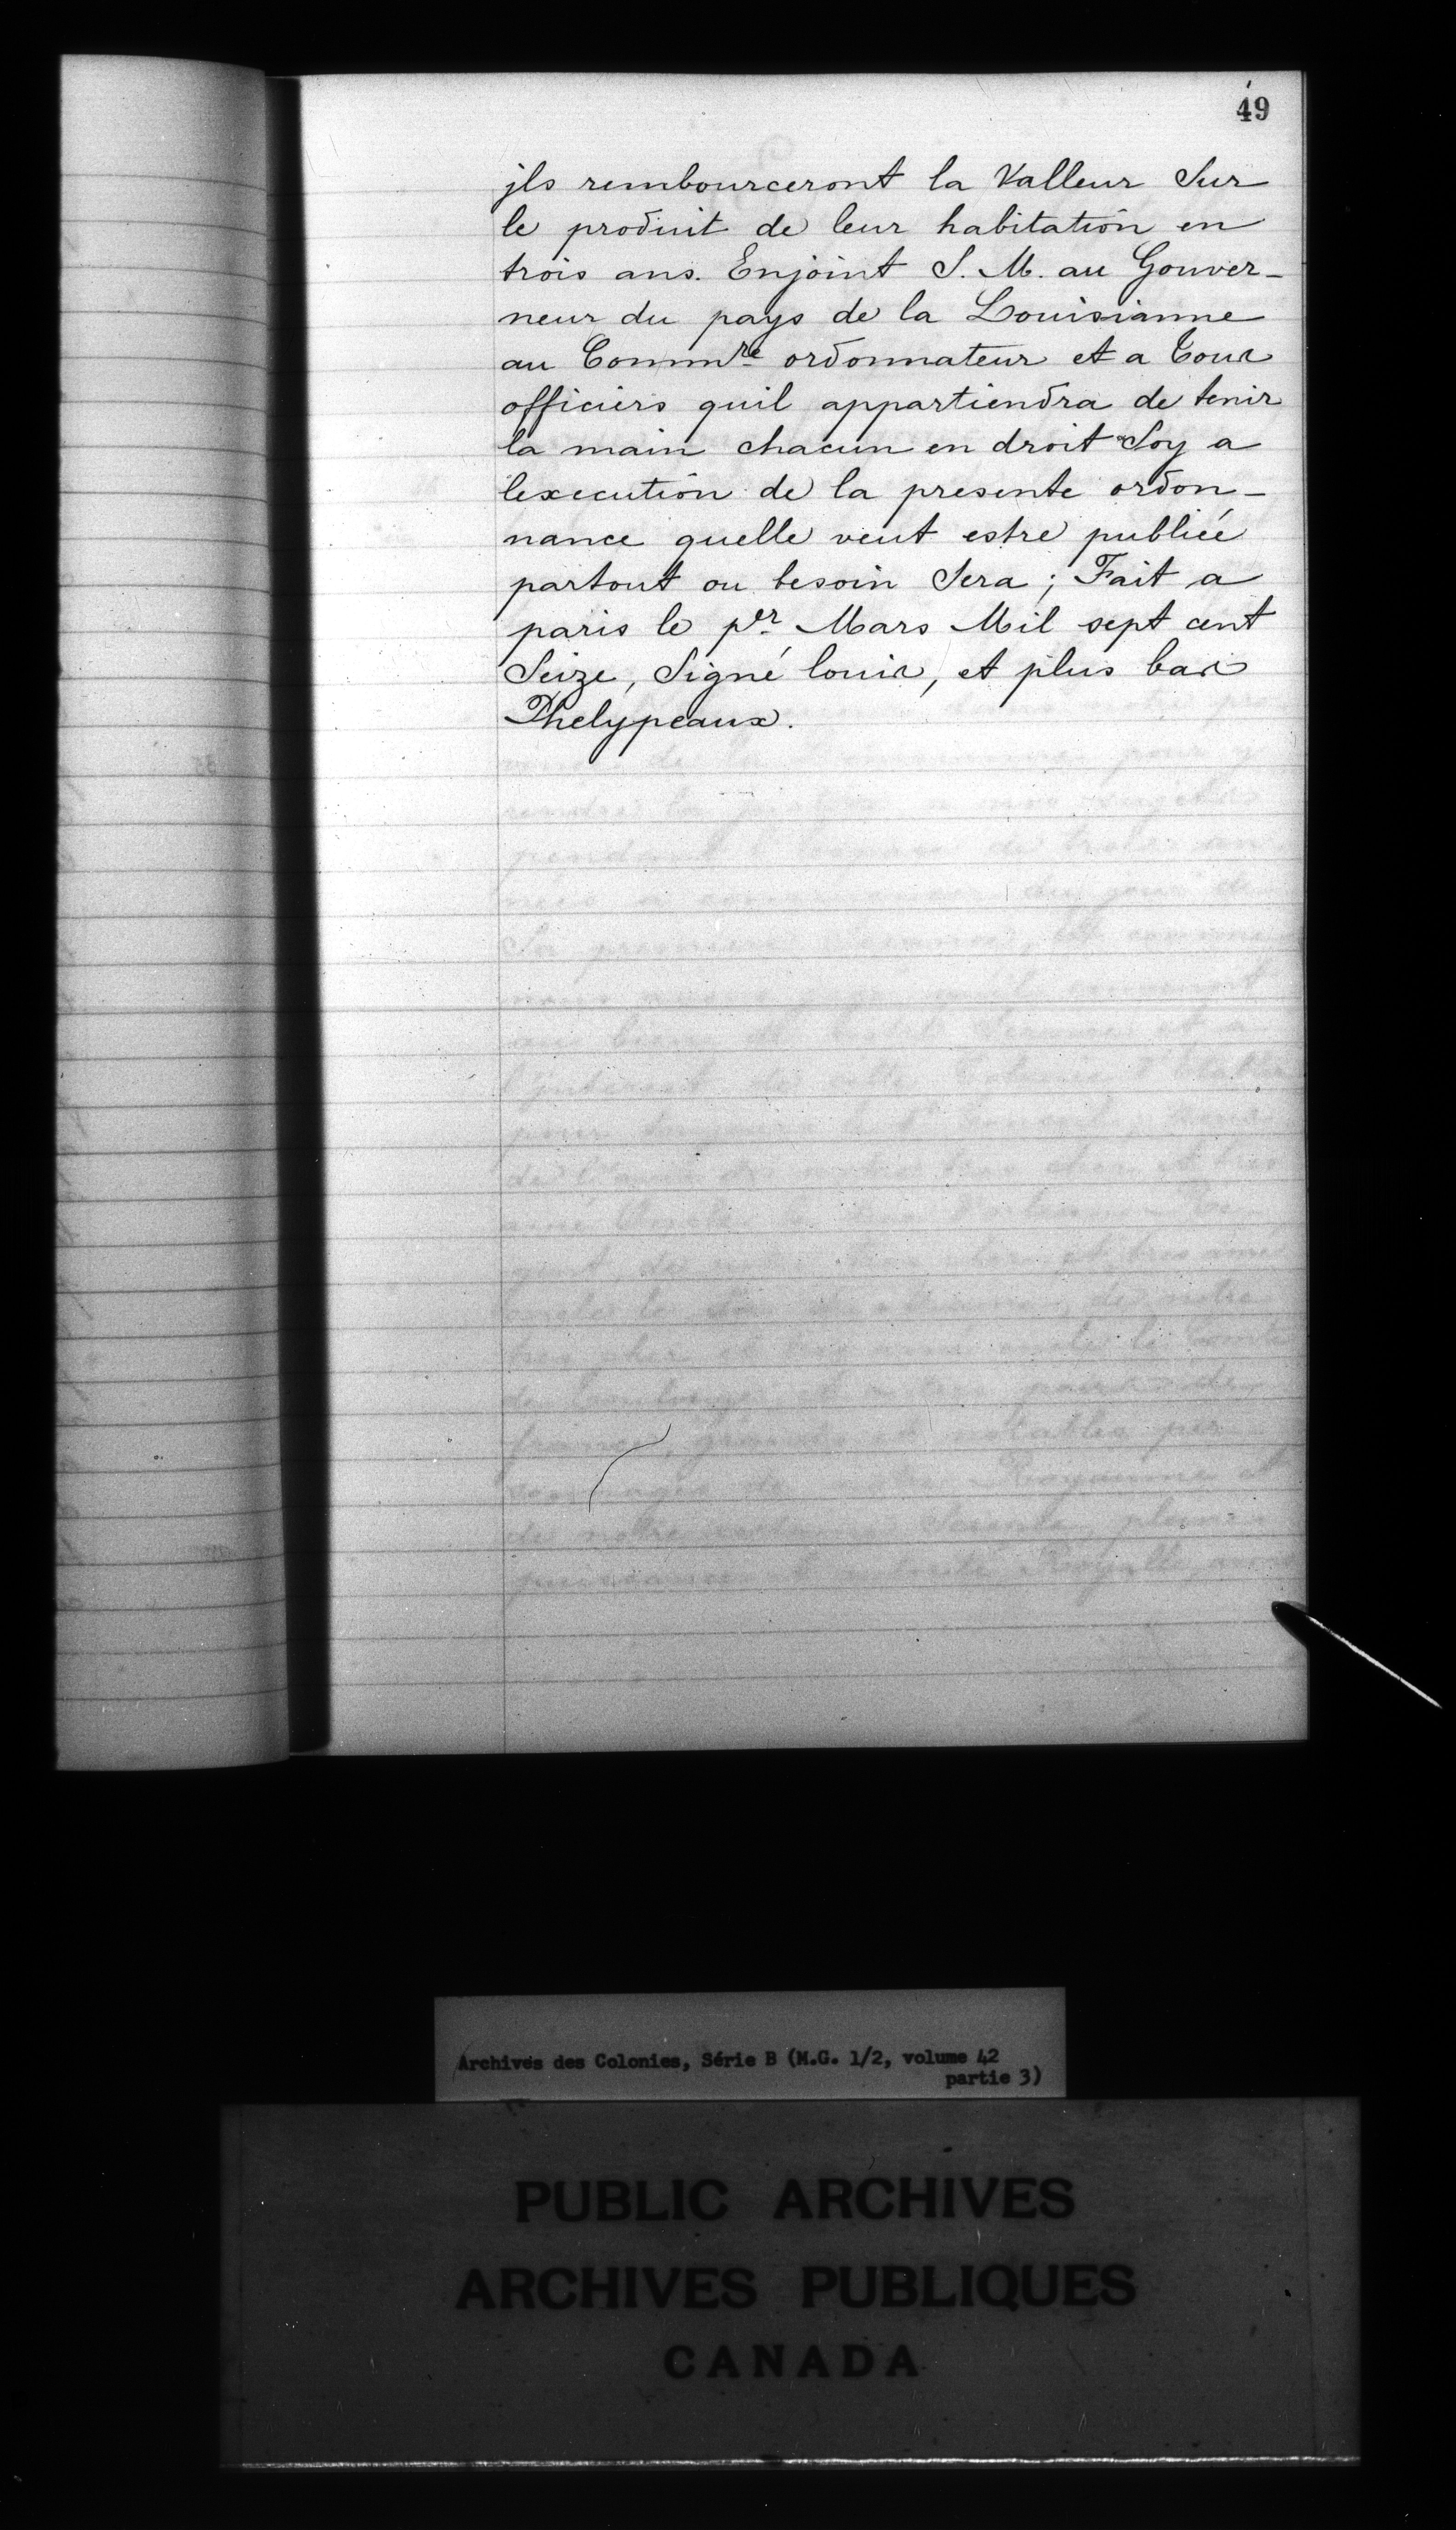 49
jls rembourceront la Valleur Sur
le produit de leur habitation en
trois ans. Enjoint S. M. au Gouver-
neur du pays de la Louisianne
au Commre ordonnateur et a tous
officiers quil appartiendra de tenir
la main chacun en droit Soy a
lexecution de la presente ordon-
nance quelle veut estre publiée
partout ou besoin Sera ; Fait a
paris le per Mars Mil sept cent
Seize, Signé louis, et plus bas
Phelypeaux.
Archives des Colonies, Série B (M.G. 1/2, volume 42
partie 3)
PUBLIC ARCHIVES
ARCHIVES PUBLIQUES
CANADA